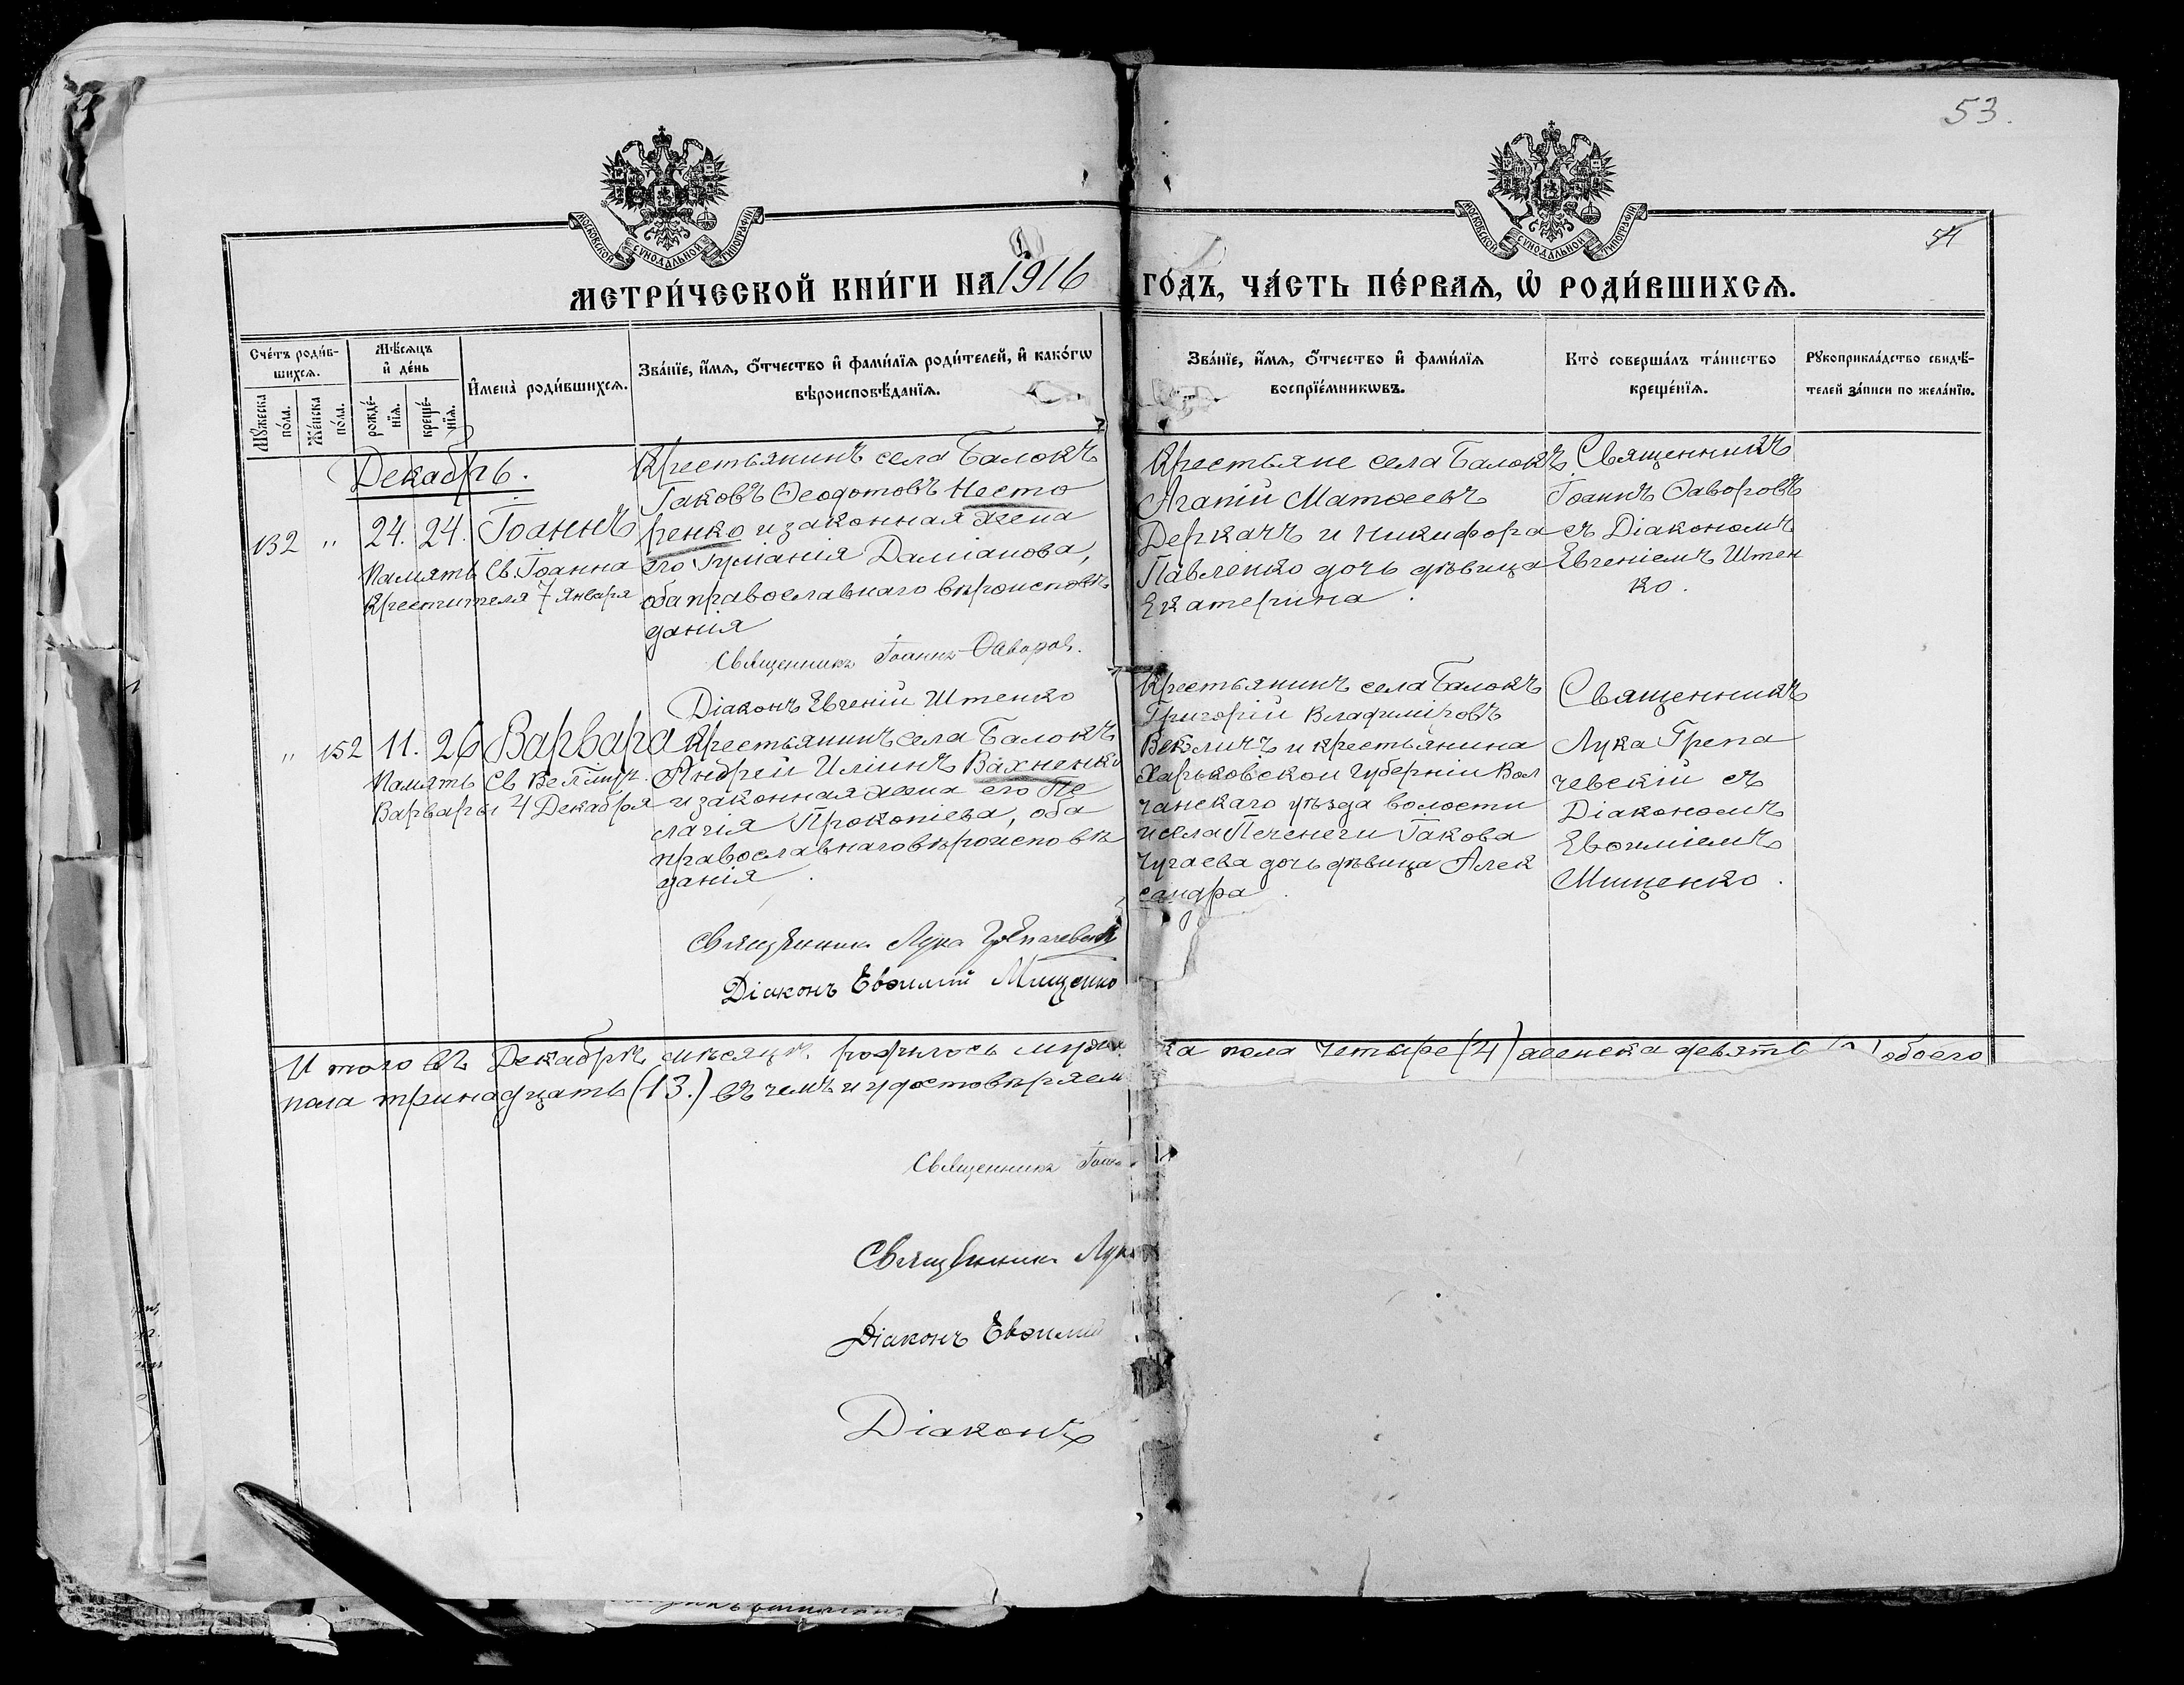 53.
54
МОСКОВСКОЙ СѴНОДАЛЬНОЙ ТИПОГРАФІИ
МОСКОВСКОЙ СѴНОДАЛЬНОЙ ТИПОГРАФІИ
МЕТРИ́ЧЕСКОЙ КНИ́ГИ НА 1916 ГО́ДЪ, ЧА́СТЬ ПЕ́РВАѦ, Ѡ҆ РОДИ́ВШИХСѦ.
Сче́тъ роди́в-
шихсѧ.
Мꙋ́жеска
по́ла.
Же́нска
по́ла.
Мѣ́сѧцъ
и҆ де́нь
рожде́-
нїѧ.
креще́-
нїѧ.
И҆мена̀ роди́вшихсѧ.
Зва́нїе, и҆́мѧ, ѻ҆́тчество и҆ фами́лїѧ роди́телей, и҆ како́гѡ
вѣроисповѣ́данїѧ.
Зва́нїе, и҆́мѧ, ѻ҆́тчество и҆ фами́лїѧ
воспрїе́мникѡвъ.
Кто̀ соверша́лъ та́инство
креще́нїѧ.
Рꙋкоприкла́дство свидѣ́-
телей за́писи по жела́нїю.
Декабрь.
132 " 24. 24. Іоаннъ
Память Св. Іоанна
Крестителя 7 Января
Крестьянинъ села Балокъ
Іаковъ Ѳеодотовъ Несто
ренко и законная жена
его Гуманія Даміанова,
оба православнаго вѣроисповѣ
данія
Священникъ Іоаннъ Ѳаворовъ.
Діаконъ Евгеній Штенко
Крестьяне села Балокъ
Агапій Матѳеевъ
Деркачъ и Никифора
Павленко дочь дѣвица
Екатерина.
Священникъ
Іоаннъ Ѳаворовъ
съ Діакономъ
Евгеніемъ Штен
ко.
" 152 11. 26 Варвара
Память Св. Великмуч.
Варвары 4 Декабря
Крестьянинъ села Балокъ
Андрей Иліинъ Вахненко
и законная жена его Пе
лагія Прокопіева, оба
православнаго вѣроисповѣ
данія.
Священникъ Лука Грепачевскій
Діаконъ Евѳимій Мищенко
Крестьянинъ села Балокъ
Григорій Владиміровъ
Векличъ и крестьянина
Харьковской Губерніи Вол
чанскаго уѣзда волости
и села Печенеги Іакова
Чугаева дочь дѣвица Алек
сандра.
Священникъ
Лука Грепа
чевскій съ
Діакономъ
Евѳиміемъ
Мищенко.
Итого въ Декабрѣ мѣсяцѣ родилось мужеска пола четыре (4) женска девять обоего
пола тринадцать (13.) въ чемъ и удостовѣряем
Священникъ Іоан
Священникъ Лука
Діаконъ Евѳимій
Діаконъ